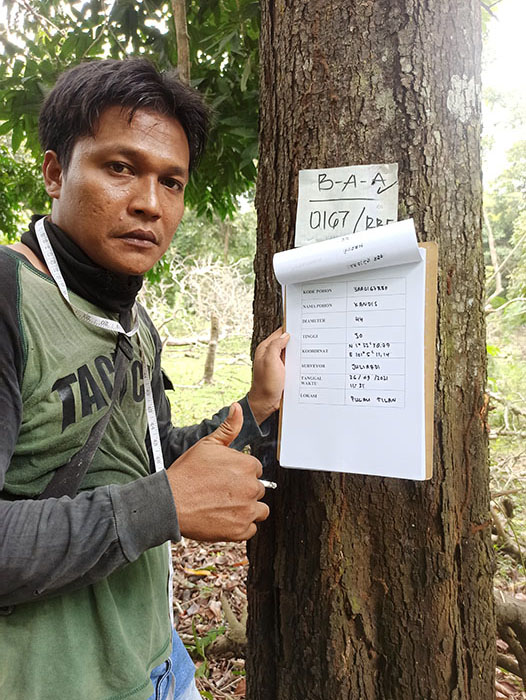 B-A-A
0167/BBE
KODE POHON
NAMA POHON KANDIS
DIAMETER 44
TINGGI 30
KOORDINAT N 1° 33'
E 101° 5' 11,14
SURVEYOR JULIARDI
TANGGAL 26/09/2021
WAKTU 11:31
LOKASI PULAU TILAN
TAC